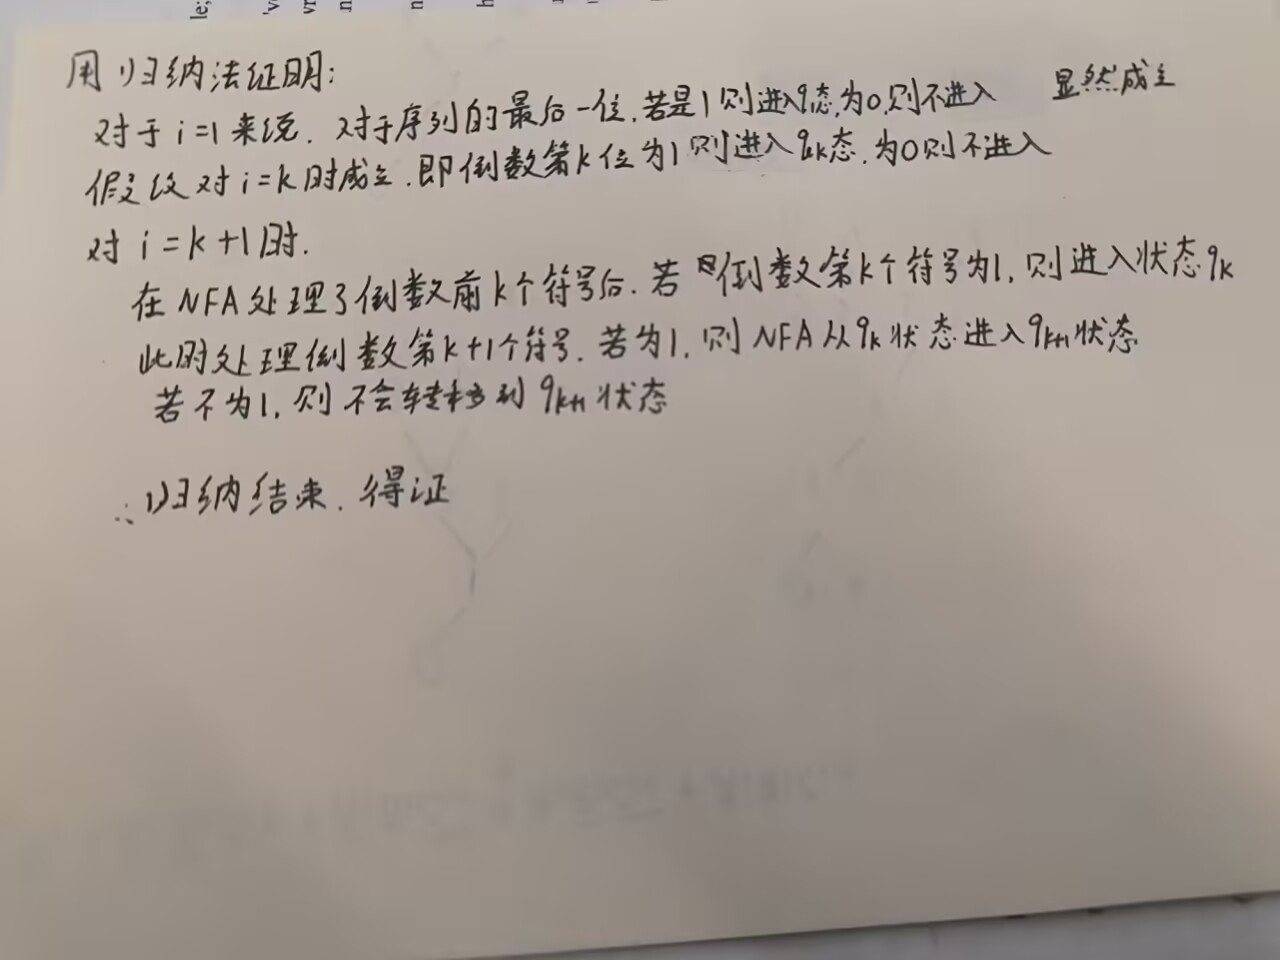 用归纳法证明:
对于i=1来说.对于序列的最后一位,若是1则进入q态,为0,则不进入 显然成立
假设对i=k时成立.即倒数第k位为1则进入qk态.为0则不进入
对i=k+1时.
在NFA处理了倒数前k个符号后.若倒数第k个符号为1.则进入状态qk
此时处理倒数第k+1个符号.若为1.则NFA从qk状态进入qk+1状态
若不为1.则不会转移到qk+1状态
∴归纳结束.得证